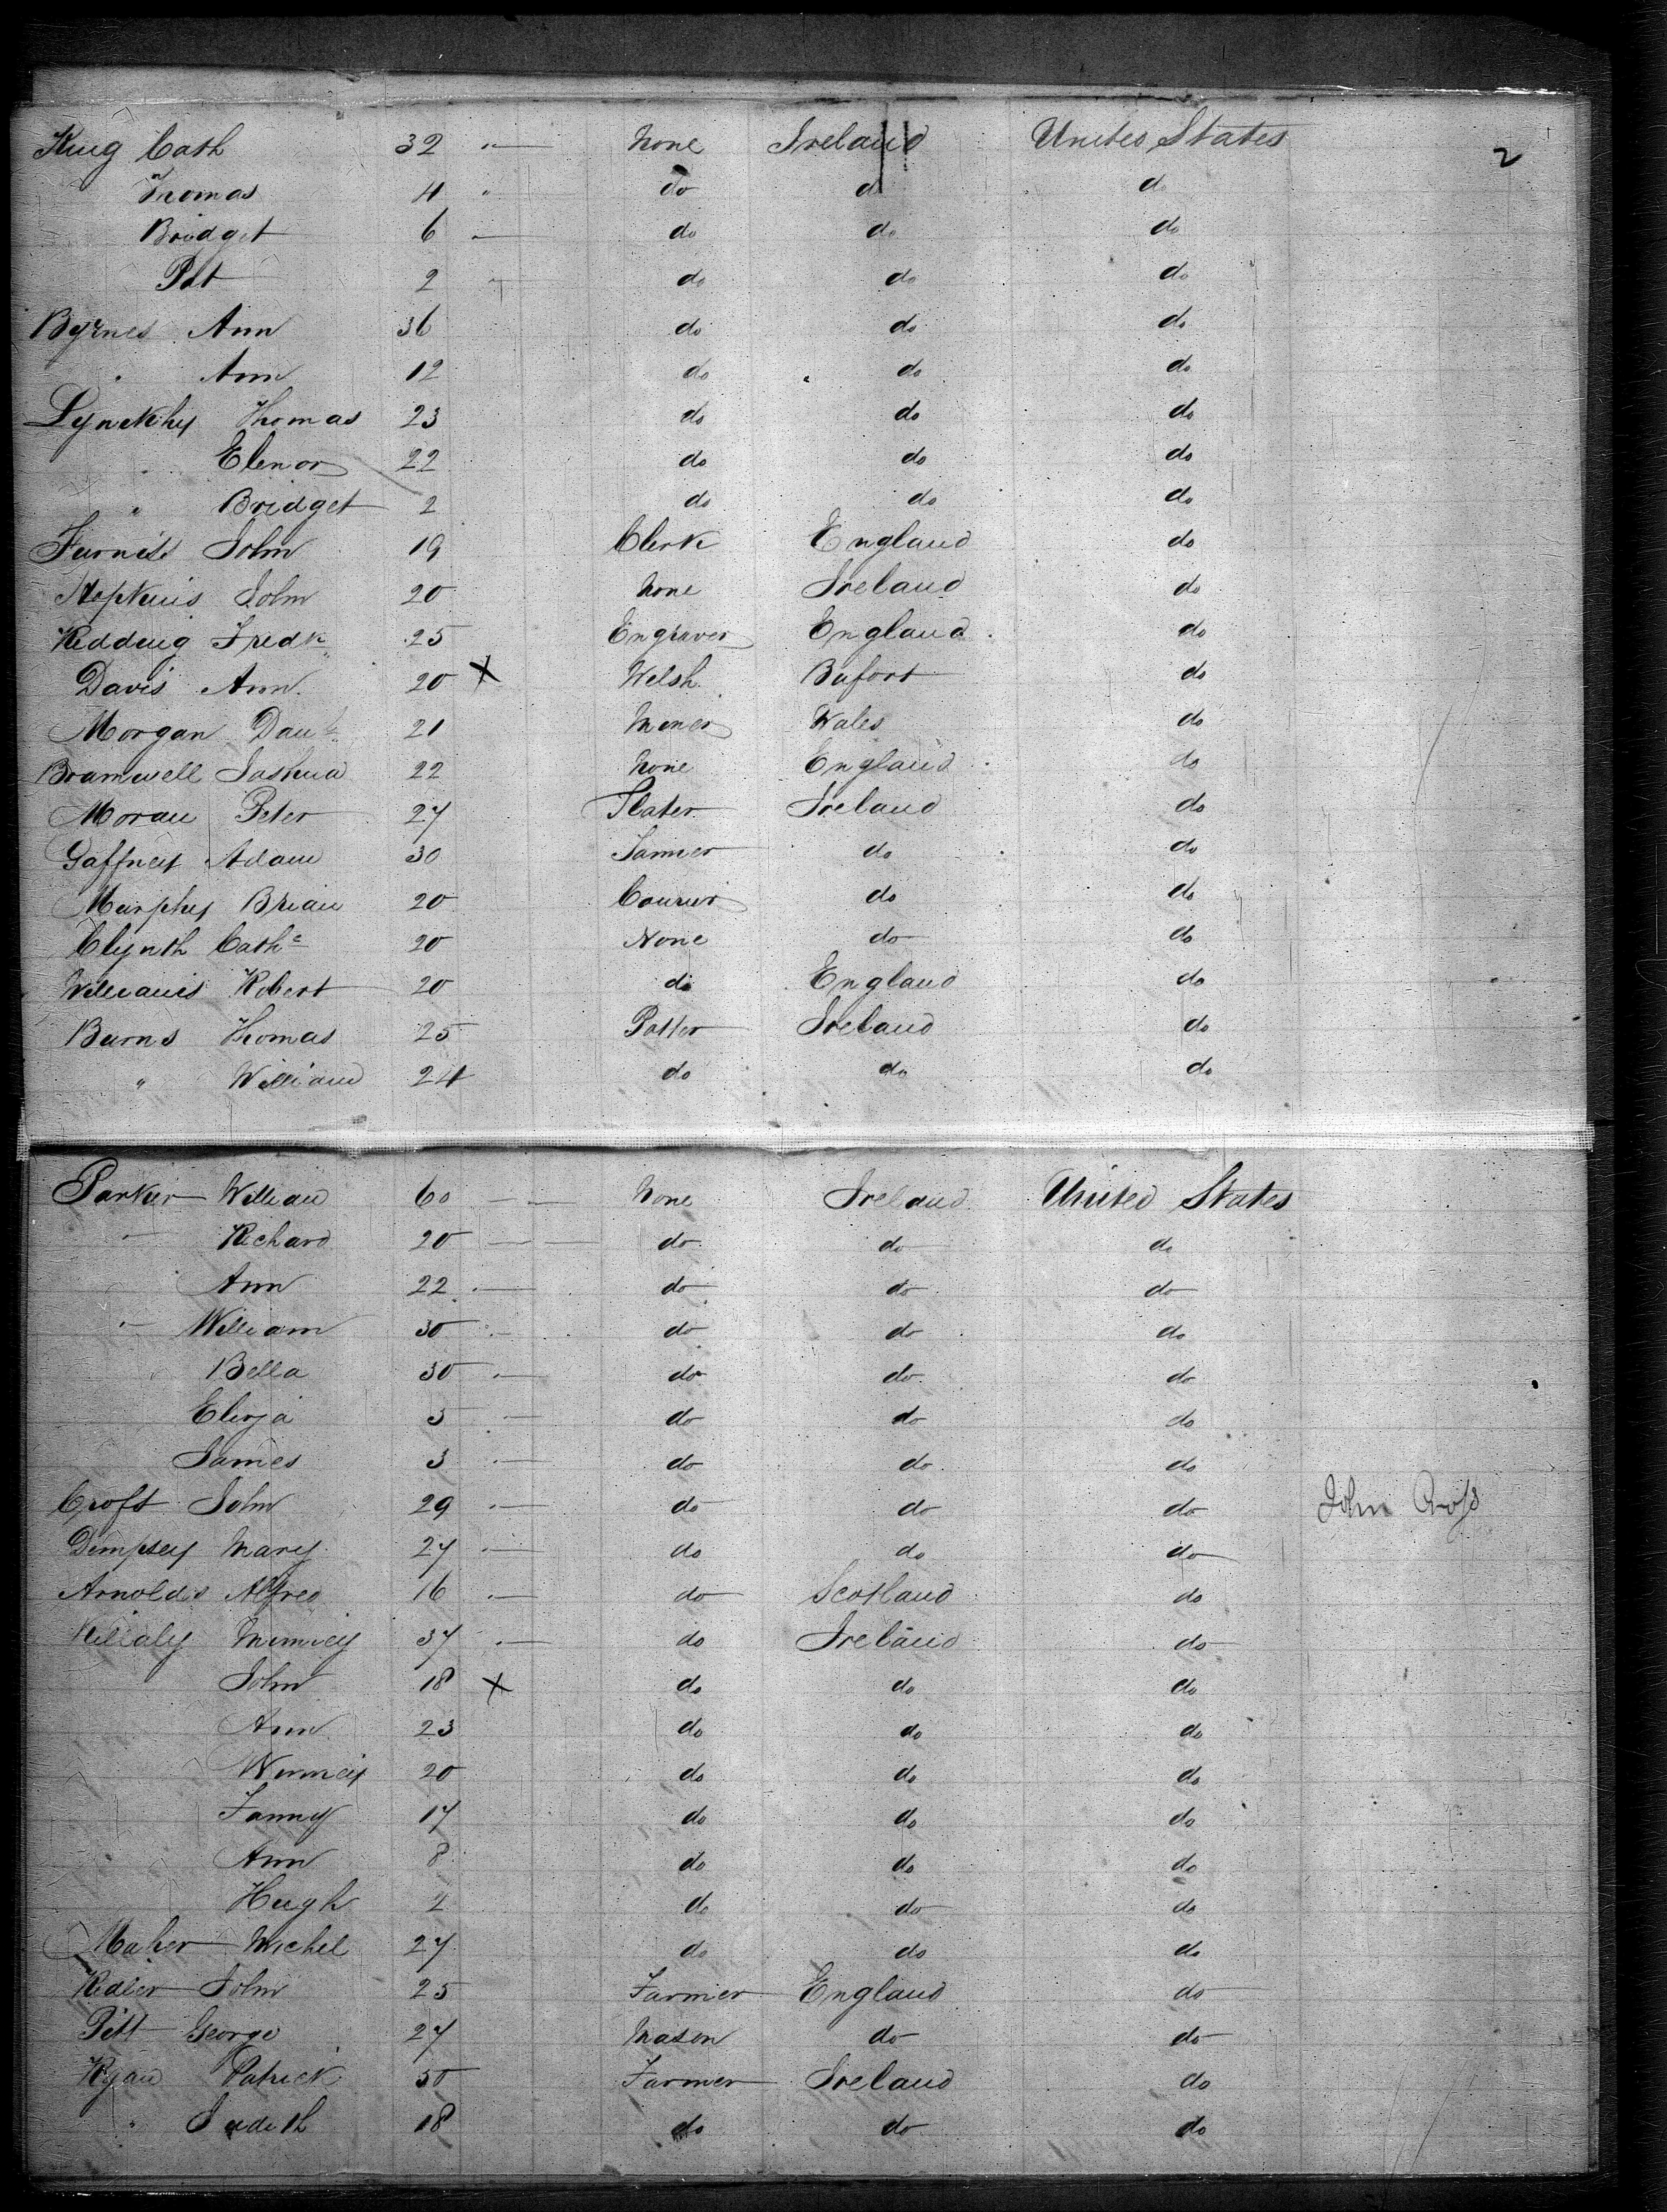 2
King Cath 32 " none Ireland United States
Thomas 4 " do do do
Bridget 6 do do do
Pat 2 do do do
Byrnes Ann 36 do do do
" Ann 12 do do do
Thomas 23 do do do
" Elenor 22 do do do
" Bridget 2 do do do
Furniss John 19 Clerk England do
Hopkins John 20 none Ireland do
Redding Fredk 25 Engraver England do
Davis Ann 20 X Welsh Bufort do
Morgan Danl 21 miner Wales do
Bramwell Joshua 22 none England do
Moran Peter 27 Slater Ireland do
Gaffney Adam 30 Tanner do do
Murphy Brian 20 Courier do do
Clynth Cathe 20 None do do
Williams Robert 20 do England do
Burns Thomas 25 Potter Ireland do
" William 24 do do do
Parker William 60 none Ireland United States
" Richard 20 do do do
Ann 22 do do do
" William 30 do do do
Bella 30 do do do
Eliza 5 do do do
James 3 do do do
Croft John 29 do do do John Cross
Dempsey Mary 27 do do do
Arnolds Alfred 16 do Scotland do
37 do Ireland do
John 18 X do do do
Ann 23 do do do
20 do do do
Fanny 17 do do do
Ann 8 do do do
Hugh do do do
Maher Michel 27 do do do
John 25 Farmer England do
Pitt George 27 Mason do do
Ryan Patrick 30 Farmer Ireland do
" Judith 18 do do do